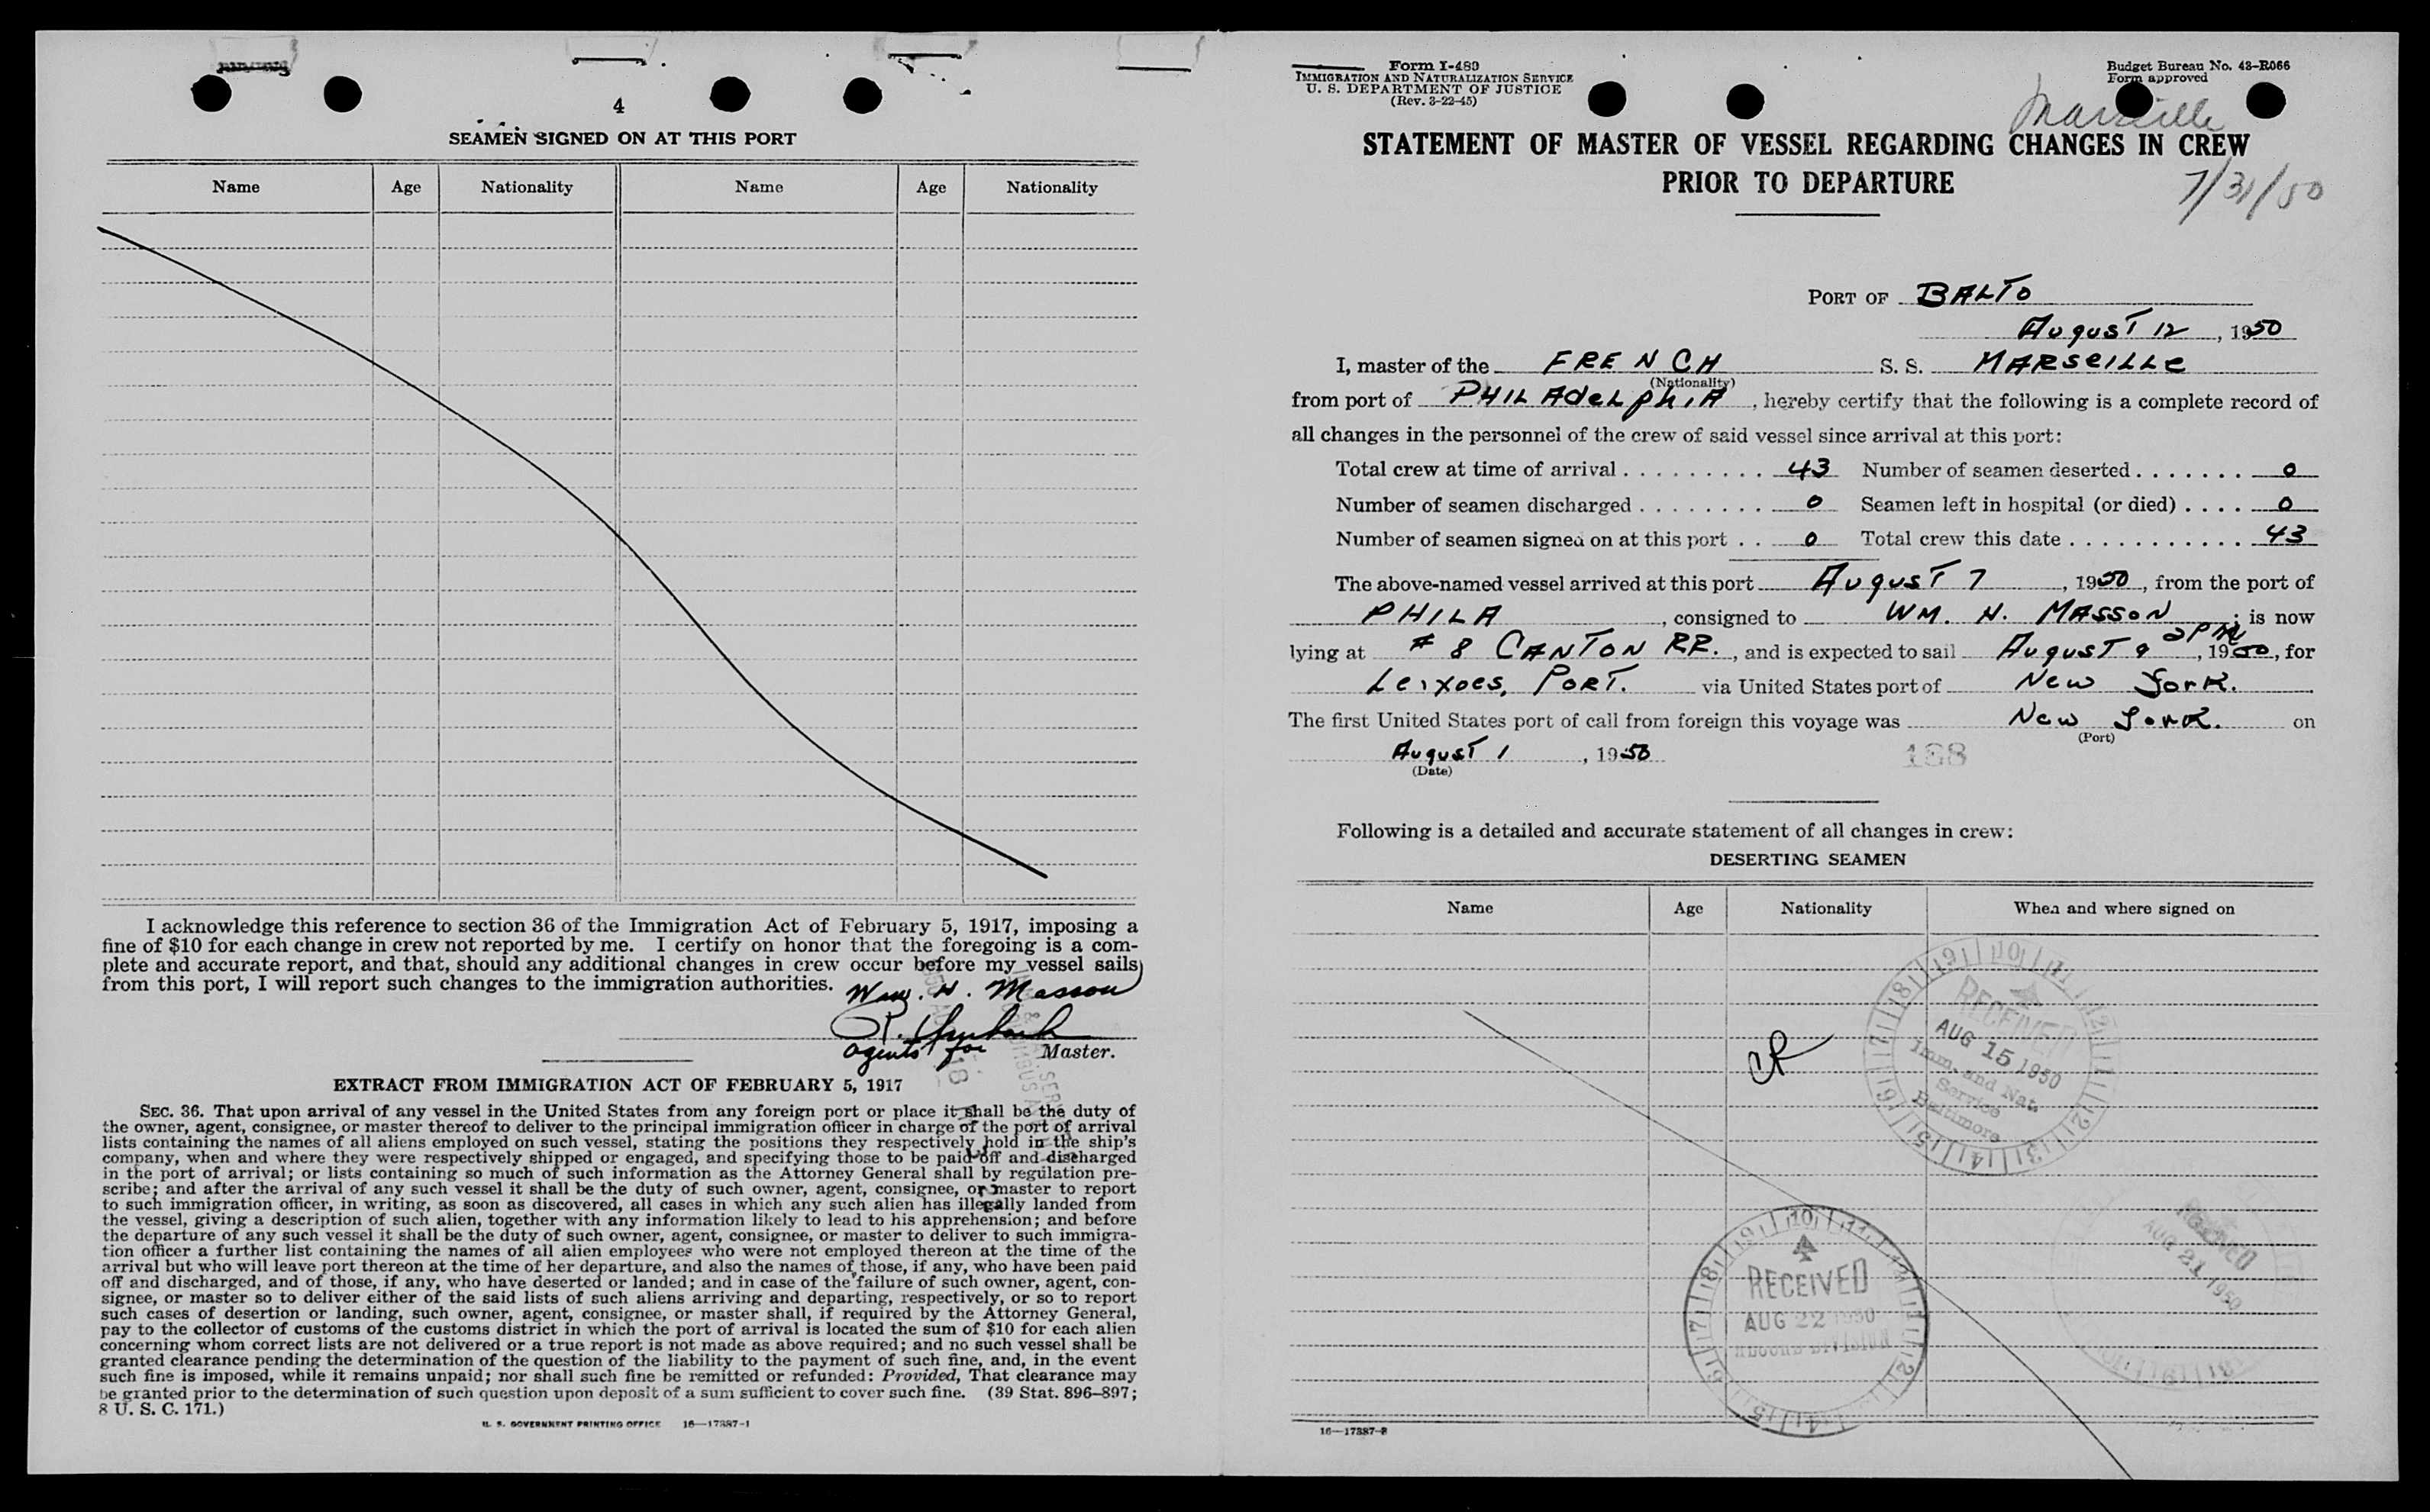 4
SEAMEN SIGNED ON AT THIS PORT
Name Age Nationality Name Age Nationality
I acknowledge this reference to section 36 of the Immigration Act of February 5, 1917, imposing a
fine of $10 for each change in crew not reported by me. I certify on honor that the foregoing is a com-
plete and accurate report, and that, should any additional changes in crew occur before my vessel sails
from this port, I will report such changes to the immigration authorities.
Wm. H. Masson
agents for Master.
EXTRACT FROM IMMIGRATION ACT OF FEBRUARY 5, 1917
SEC. 36. That upon arrival of any vessel in the United States from any foreign port or place it shall be the duty of
the owner, agent, consignee, or master thereof to deliver to the principal immigration officer in charge of the port of arrival
lists containing the names of all aliens employed on such vessel, stating the positions they respectively hold in the ship's
company, when and where they were respectively shipped or engaged, and specifying those to be paid off and discharged
in the port of arrival; or lists containing so much of such information as the Attorney General shall by regulation pre-
scribe; and after the arrival of any such vessel it shall be the duty of such owner, agent, consignee, or master to report
to such immigration officer, in writing, as soon as discovered, all cases in which any such alien has illegally landed from
the vessel, giving a description of such alien, together with any information likely to lead to his apprehension; and before
the departure of any such vessel it shall be the duty of such owner, agent, consignee, or master to deliver to such immigra-
tion officer a further list containing the names of all alien employees who were not employed thereon at the time of the
arrival but who will leave port thereon at the time of her departure, and also the names of those, if any, who have been paid
off and discharged, and of those, if any, who have deserted or landed; and in case of the failure of such owner, agent, con-
signee, or master so to deliver either of the said lists of such aliens arriving and departing, respectively, or so to report
such cases of desertion or landing, such owner, agent, consignee, or master shall, if required by the Attorney General,
pay to the collector of customs of the customs district in which the port of arrival is located the sum of $10 for each alien
concerning whom correct lists are not delivered or a true report is not made as above required; and no such vessel shall be
granted clearance pending the determination of the question of the liability to the payment of such fine, and, in the event
such fine is imposed, while it remains unpaid; nor shall such fine be remitted or refunded: Provided, That clearance may
be granted prior to the determination of such question upon deposit of a sum sufficient to cover such fine. (39 Stat. 896-897;
8 U. S. C. 171.)
U. S. GOVERNMENT PRINTING OFFICE 16—17387-1
Form I-489
IMMIGRATION AND NATURALIZATION SERVICE
U. S. DEPARTMENT OF JUSTICE
(Rev. 3-22-45)
Budget Bureau No. 43-R066
Form approved
Marseille
STATEMENT OF MASTER OF VESSEL REGARDING CHANGES IN CREW
PRIOR TO DEPARTURE
7/31/50
PORT OF BALTO
August 12, 1950
I, master of the FRENCH S. S. MARSEILLE
(Nationality)
from port of PHILADELPHIA, hereby certify that the following is a complete record of
all changes in the personnel of the crew of said vessel since arrival at this port:
Total crew at time of arrival . . . . . . . . . 43 Number of seamen deserted . . . . . . . 0
Number of seamen discharged . . . . . . . . 0 Seamen left in hospital (or died) . . . . 0
Number of seamen signed on at this port . . 0 Total crew this date . . . . . . . . . . . . 43
The above-named vessel arrived at this port August 7, 1950, from the port of
PHILA, consigned to WM. H. MASSON; is now
lying at # 8 CANTON RR., and is expected to sail August 9 2PM, 1950, for
Leixoes, PORT. via United States port of New York.
The first United States port of call from foreign this voyage was New York. on
(Port)
August 1, 1950
(Date)
188
Following is a detailed and accurate statement of all changes in crew:
DESERTING SEAMEN
Name Age Nationality When and where signed on
RECEIVED
AUG 15 1950
Imm. and Nat.
Service
Baltimore
RECEIVED
AUG 21 1950
RECEIVED
AUG 22 1950
RECORD DIVISION
16—17387-2